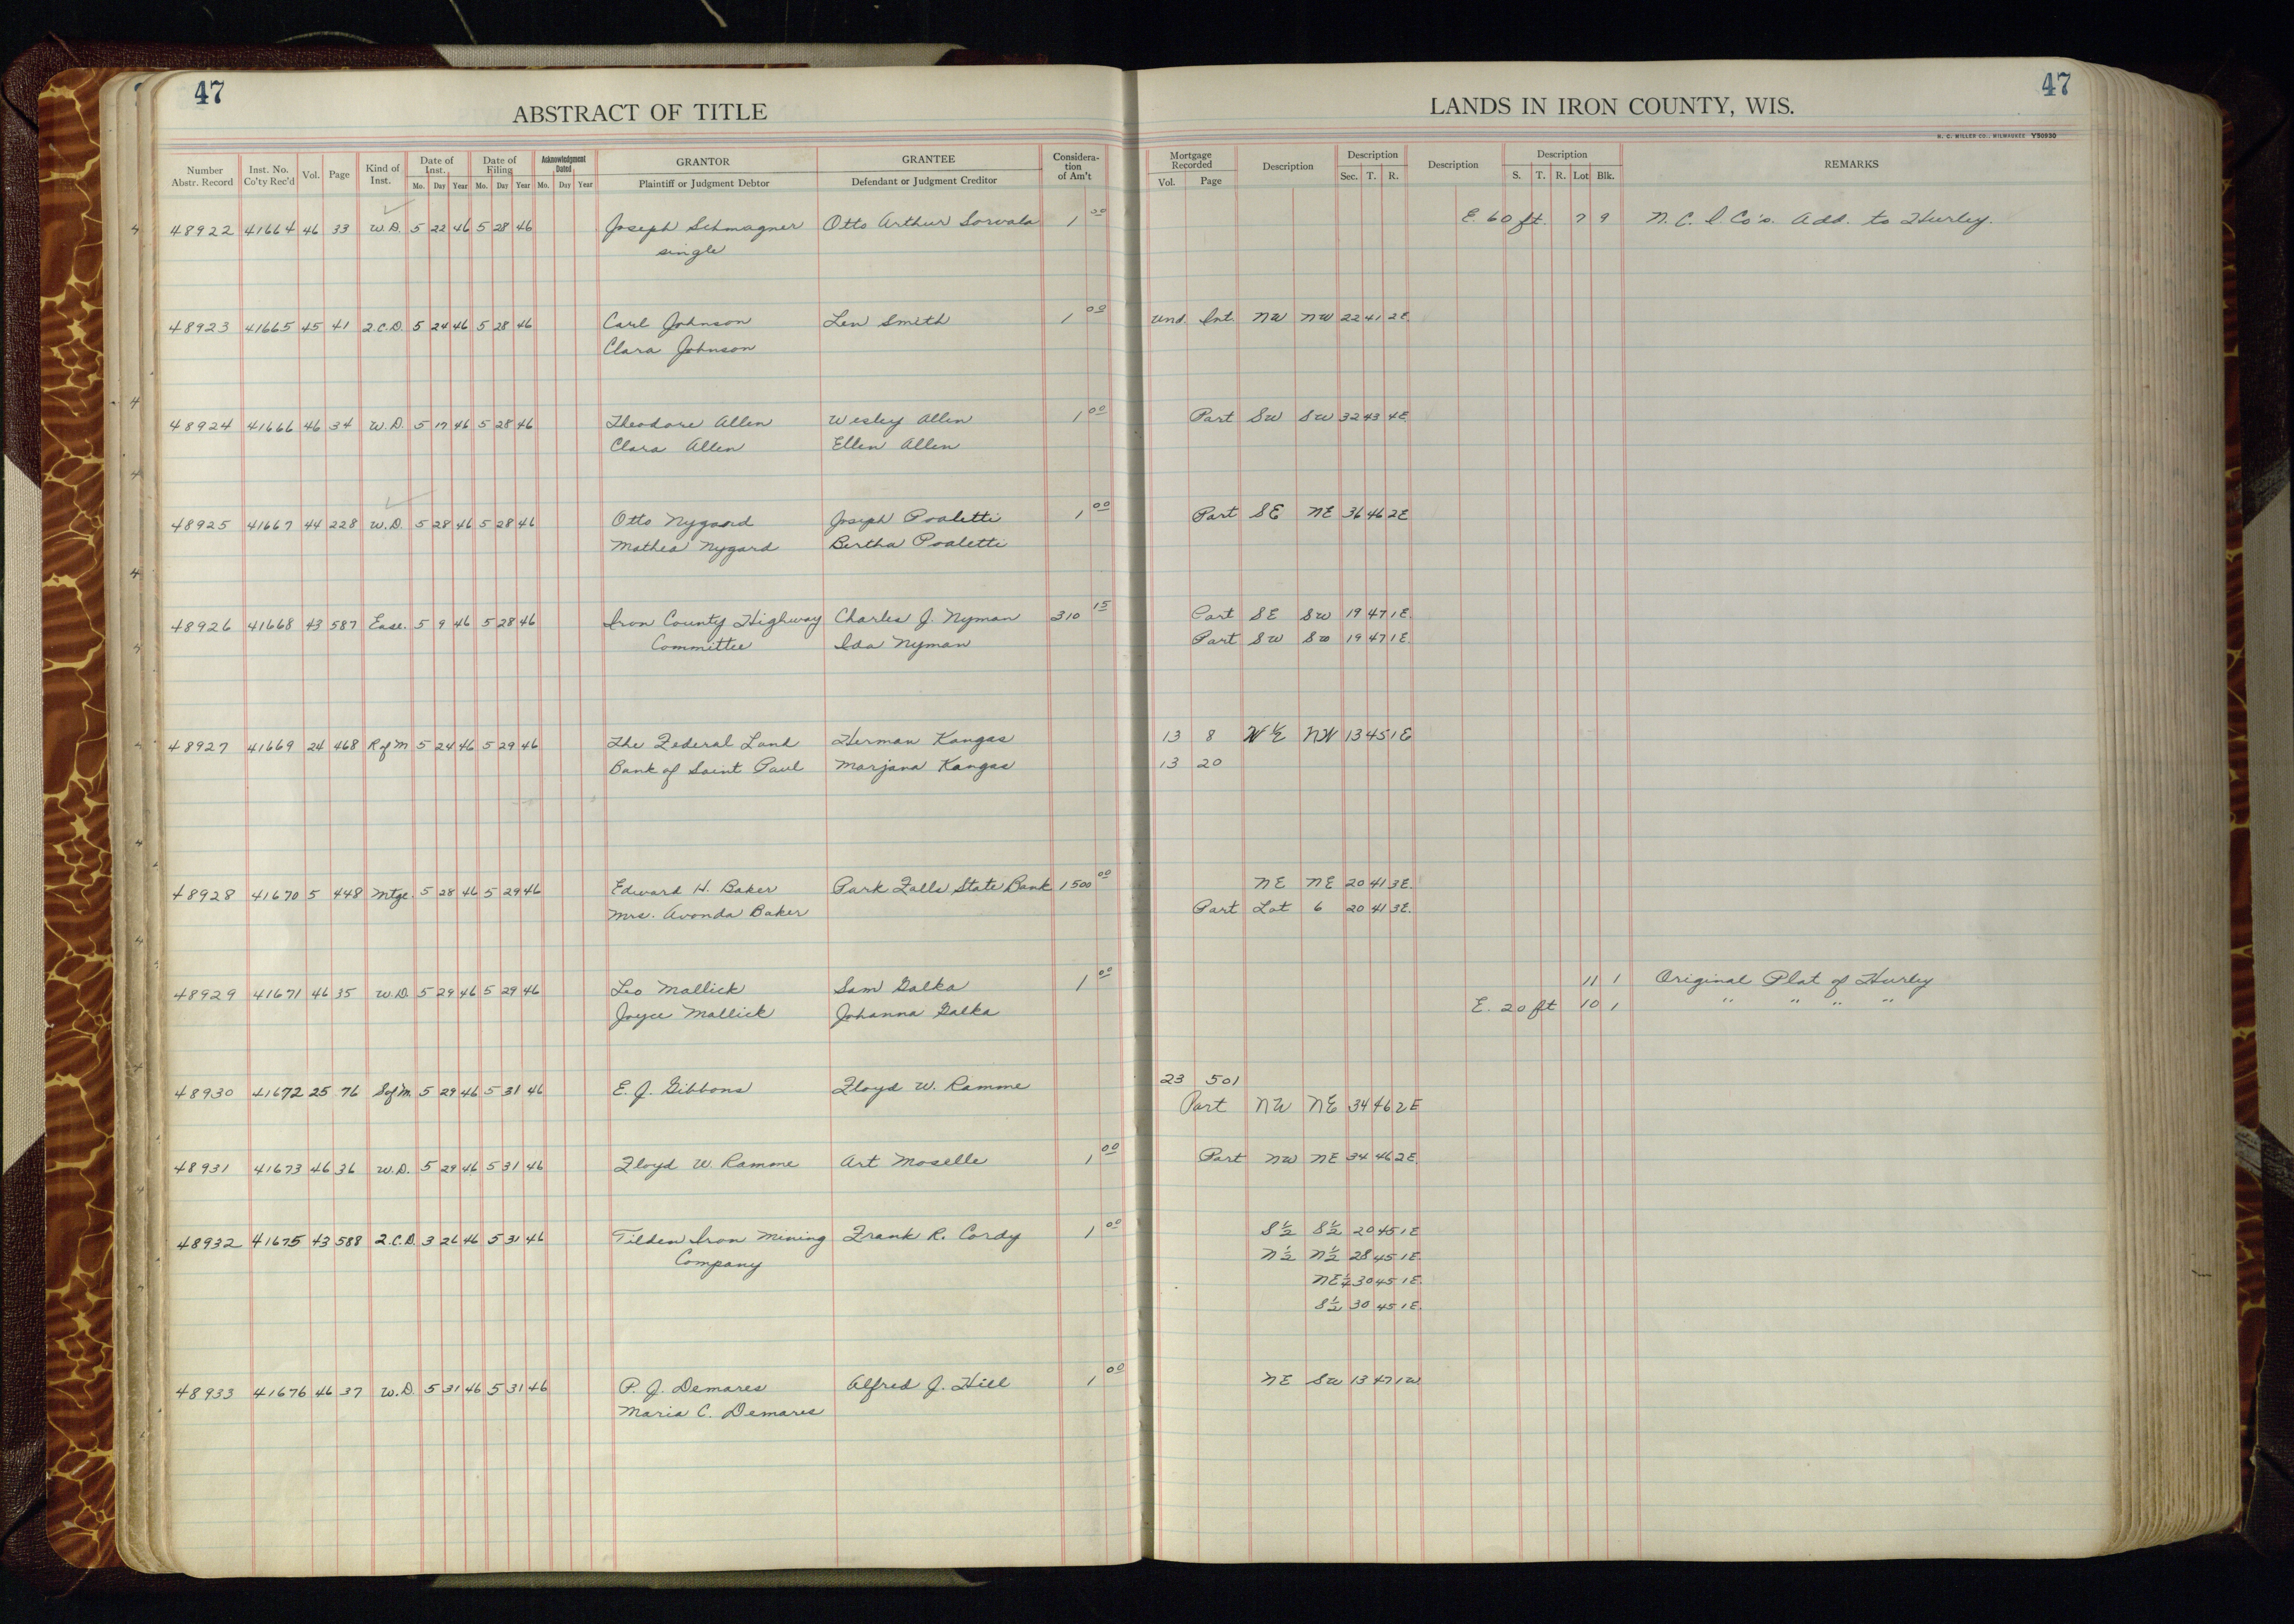 47
47
ABSTRACT OF TITLE
LANDS IN IRON COUNTY, WIS.
H. C. MILLER CO., MILWAUKEE Y50930
Number Abstr. Record Inst. No. Co'ty Rec'd Vol. Page Kind of Inst. Date of Inst. Mo. Day Year Date of Filing Mo. Day Year Acknowledgment Dated Mo. Day Year GRANTOR Plaintiff or Judgment Debtor GRANTEE Defendant or Judgment Creditor Consideration of Am't Mortgage Recorded Vol. Page Description Description Sec. T. R. Description Description S. T. R. Lot Blk. REMARKS
48922 41664 46 33 W.D. 5 22 46 5 28 46 Joseph Schmagner Otto Arthur Sorvala 1 00 E. 60 ft. 7 9 N. C. I. Co's. Add. to Hurley.
single
48923 41665 45 41 2.C.D. 5 24 46 5 28 46 Carl Johnson Len Smith 1 00 Und. Int. NW NW 22 41 2E.
Clara Johnson
48924 41666 46 34 W.D. 5 17 46 5 28 46 Theodore Allen Wesley Allen 1 00 Part SW SW 32 43 4E.
Clara Allen Ellen Allen
48925 41667 44 228 W.D. 5 28 46 5 28 46 Otto Nygaard Joseph Poaletti 1 00 Part SE NE 36 46 2E
Mathea Nygard Bertha Poaletti
48926 41668 43 587 Ease. 5 9 46 5 28 46 Iron County Highway Charles J. Nyman 310 15 Part SE SW 19 47 1E.
Committee Ida Nyman Part SW SW 19 47 1E.
48927 41669 24 468 R of M 5 24 46 5 29 46 The Federal Land Herman Kangas 13 8 NW 13 45 1E
Bank of Saint Paul Marjana Kangas 13 20
48928 41670 5 448 Mtge. 5 28 46 5 29 46 Edward H. Baker Park Falls State Bank 1500 00 NE NE 20 41 3E.
Mrs. Avonda Baker Part Lot 6 20 41 3E.
48929 41671 46 35 W.D. 5 29 46 5 29 46 Leo Mallick Sam Galka 1 00 11 1 Original Plat of Hurley
Joyce Mallick Johanna Galka E. 20 ft 10 1 " " " "
48930 41672 25 76 S of M. 5 29 46 5 31 46 E. J. Gibbons Floyd W. Ramme 23 501
Part NW NE 34 46 2E
48931 41673 46 36 W.D. 5 29 46 5 31 46 Floyd W. Ramme Art Moselle 1 00 Part NW NE 34 46 2E.
48932 41675 43 588 2.C.D. 3 26 46 5 31 46 Tilden Iron Mining Frank R. Cordy 1 00 S½ S½ 20 45 1E
Company N½ N½ 28 45 1E.
NE¼ 30 45 1E.
S½ 30 45 1E.
48933 41676 46 37 W.D. 5 31 46 5 31 46 P. J. Demares Alfred J. Hill 1 00 NE SW 13 47 1W
Maria C. Demares